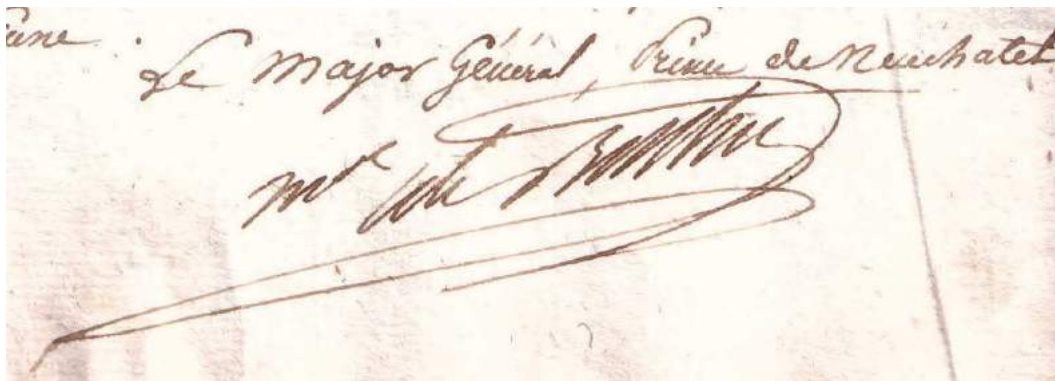 Le Major Général, Prince de Neuchatel
mal Alex Berthier